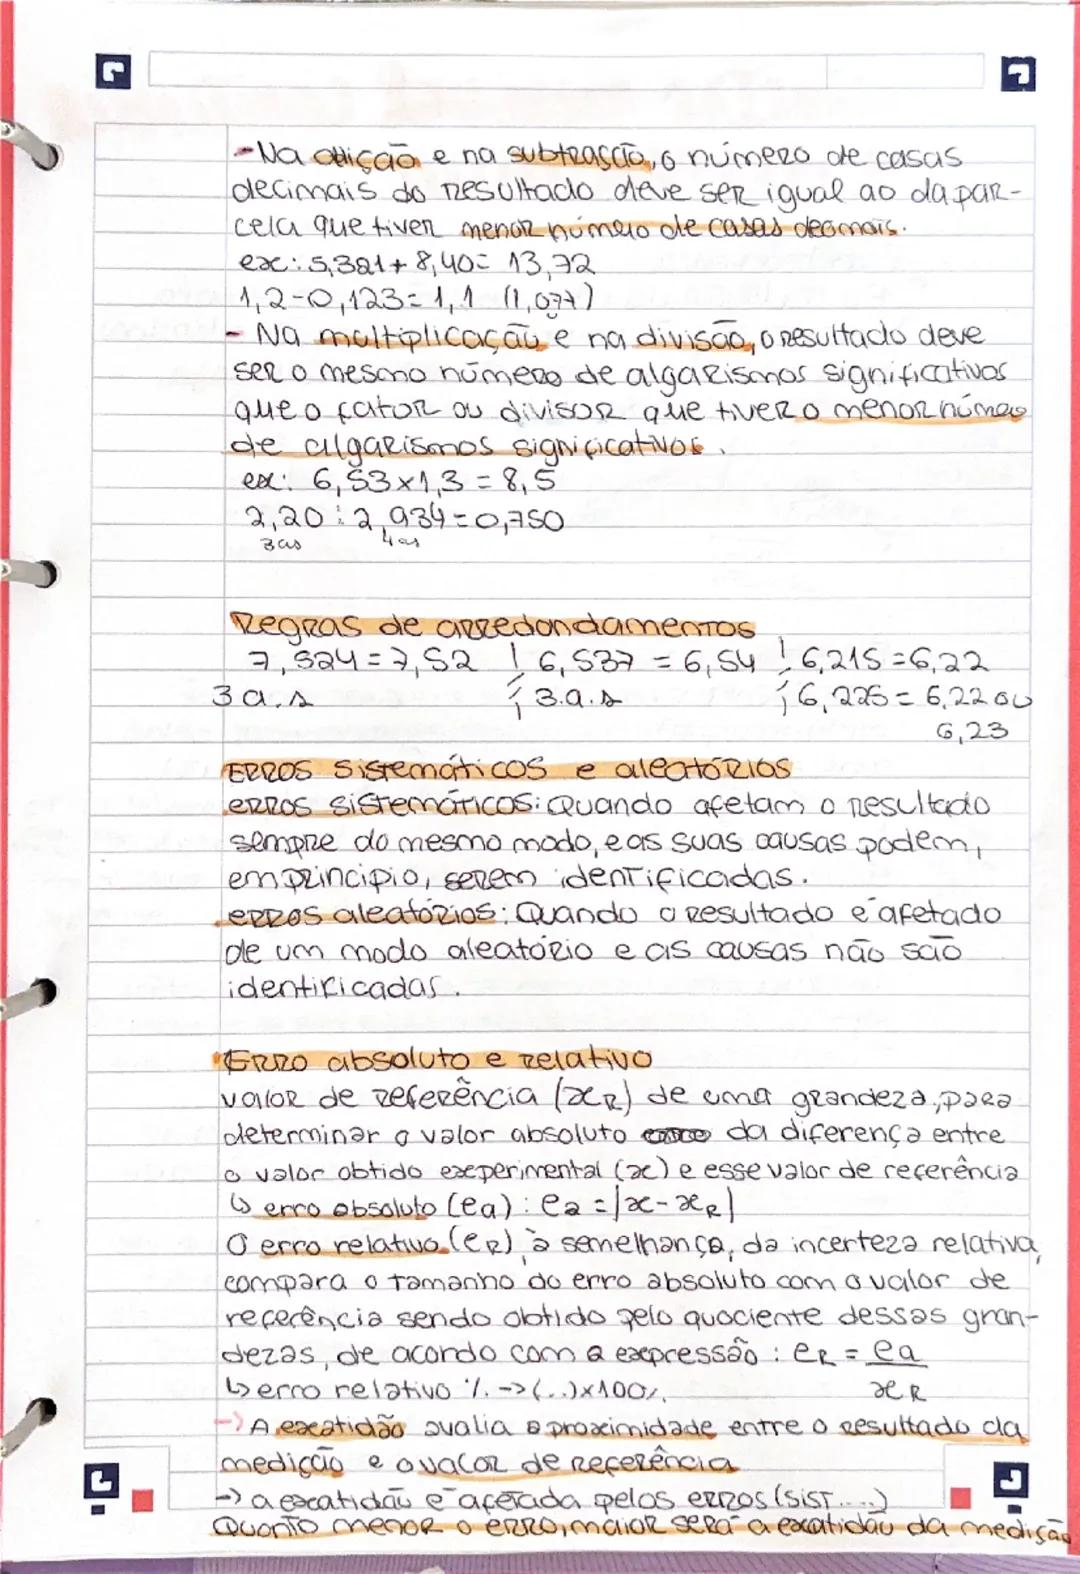 - Na adição e na subtração, o número de casas
decimais do resultado deve ser igual ao da par-
cela que tiver menor número de casas decimais.
ex: 5,321 + 8,40 = 13,72
1,2 - 0,123 = 1,1 (1,077)
- Na multiplicação e na divisão, o resultado deve
ser o mesmo número de algarismos significativos
que o fator ou divisor que tiver o menor número
de algarismos significativos.
ex: 6,53 x 1,3 = 8,5
2,20 : 2,934 = 0,750
3 as 4 as
Regras de arredondamentos
7,524 = 7,52 | 6,537 = 6,54 | 6,215 = 6,22
3 a.s 3.a.s 6,225 = 6,22 ou
6,23
Erros sistemáticos e aleatórios
erros sistemáticos: Quando afetam o resultado
sempre do mesmo modo, e as suas causas podem,
em principio, serem identificadas.
erros aleatórios: Quando o resultado é afetado
de um modo aleatório e as causas não são
identificadas.
Erro absoluto e relativo
valor de referência (xR) de uma grandeza, para
determinar o valor absoluto da diferença entre
o valor obtido experimental (x) e esse valor de referência
↳ erro absoluto (ea) : ea = |x - xR|
O erro relativo (eR), à semelhança, da incerteza relativa,
compara o tamanho do erro absoluto com o valor de
referência sendo obtido pelo quociente dessas gran-
dezas, de acordo com a expressão : eR = ea
↳ erro relativo % -> (...) x 100% xR
-> A exatidão avalia a proximidade entre o resultado da
medição e o valor de referência
-> a exatidão é afetada pelos erros (sist.....)
Quanto menor o erro, maior será a exatidão da medição